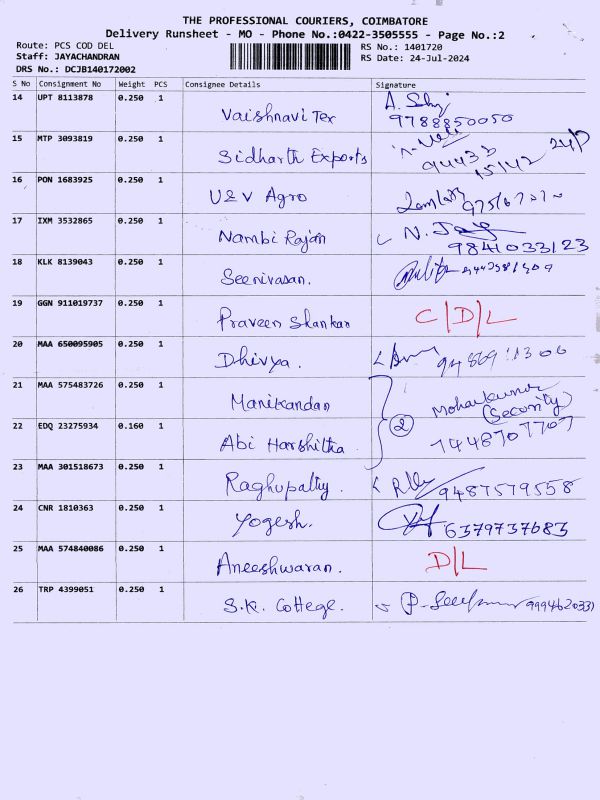 THE PROFESSIONAL COURIERS, COIMBATORE
Delivery Runsheet - MO - Phone No.:0422-3505555 - Page No.:2
Route: PCS COD DEL
Staff: JAYACHANDRAN
DRS No.: DCJB140172002
RS No.: 1401720
RS Date: 24-Jul-2024
S No Consignment No Weight PCS Consignee Details Signature
14 UPT 8113878 0.250 1 Vaishnavi Tex
9788850050
15 MTP 3093819 0.250 1 Sidharth Exports
94433
15142
16 PON 1683925 0.250 1 U&V Agro
17 IXM 3532865 0.250 1 Nambi Rajan
9841033123
18 KLK 8139043 0.250 1 Seenivasan.
19 GGN 911019737 0.250 1 Praveen Shankar C/D/L
20 MAA 650095905 0.250 1 Dhivya.
21 MAA 575483726 0.250 1 Manikandan Mohankumar
(Security)
22 EDQ 23275934 0.160 1 Abi Harshitha 2
7448707707
23 MAA 301518673 0.250 1 Raghupathy. 9487579558
24 CNR 1810363 0.250 1 Yogesh. 6379737683
25 MAA 574840086 0.250 1 Aneeshwaran. D/L
26 TRP 4399051 0.250 1 S.K. College.